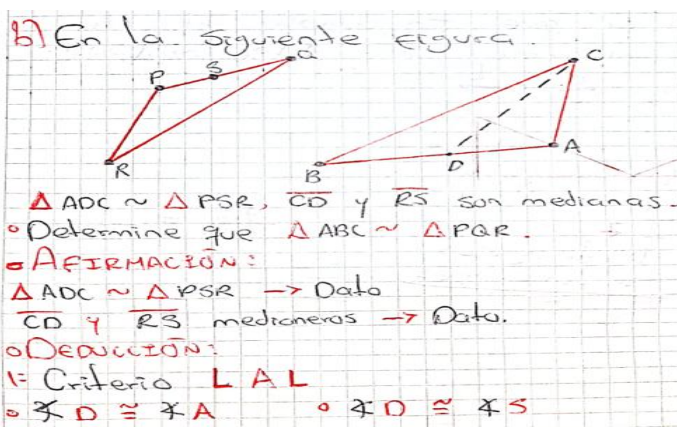 b) En la siguiente figura.
P S Q
R
C
B D A
Δ ADC ~ Δ PSR, CD y RS son medianas.
• Determine que Δ ABC ~ Δ PQR.
• AFIRMACIÓN:
Δ ADC ~ Δ PSR → Dato
CD y RS medianeros → Dato.
• DEDUCCIÓN:
1= Criterio L A L
• ∡ D ≅ ∡ A • ∡ D ≅ ∡ S